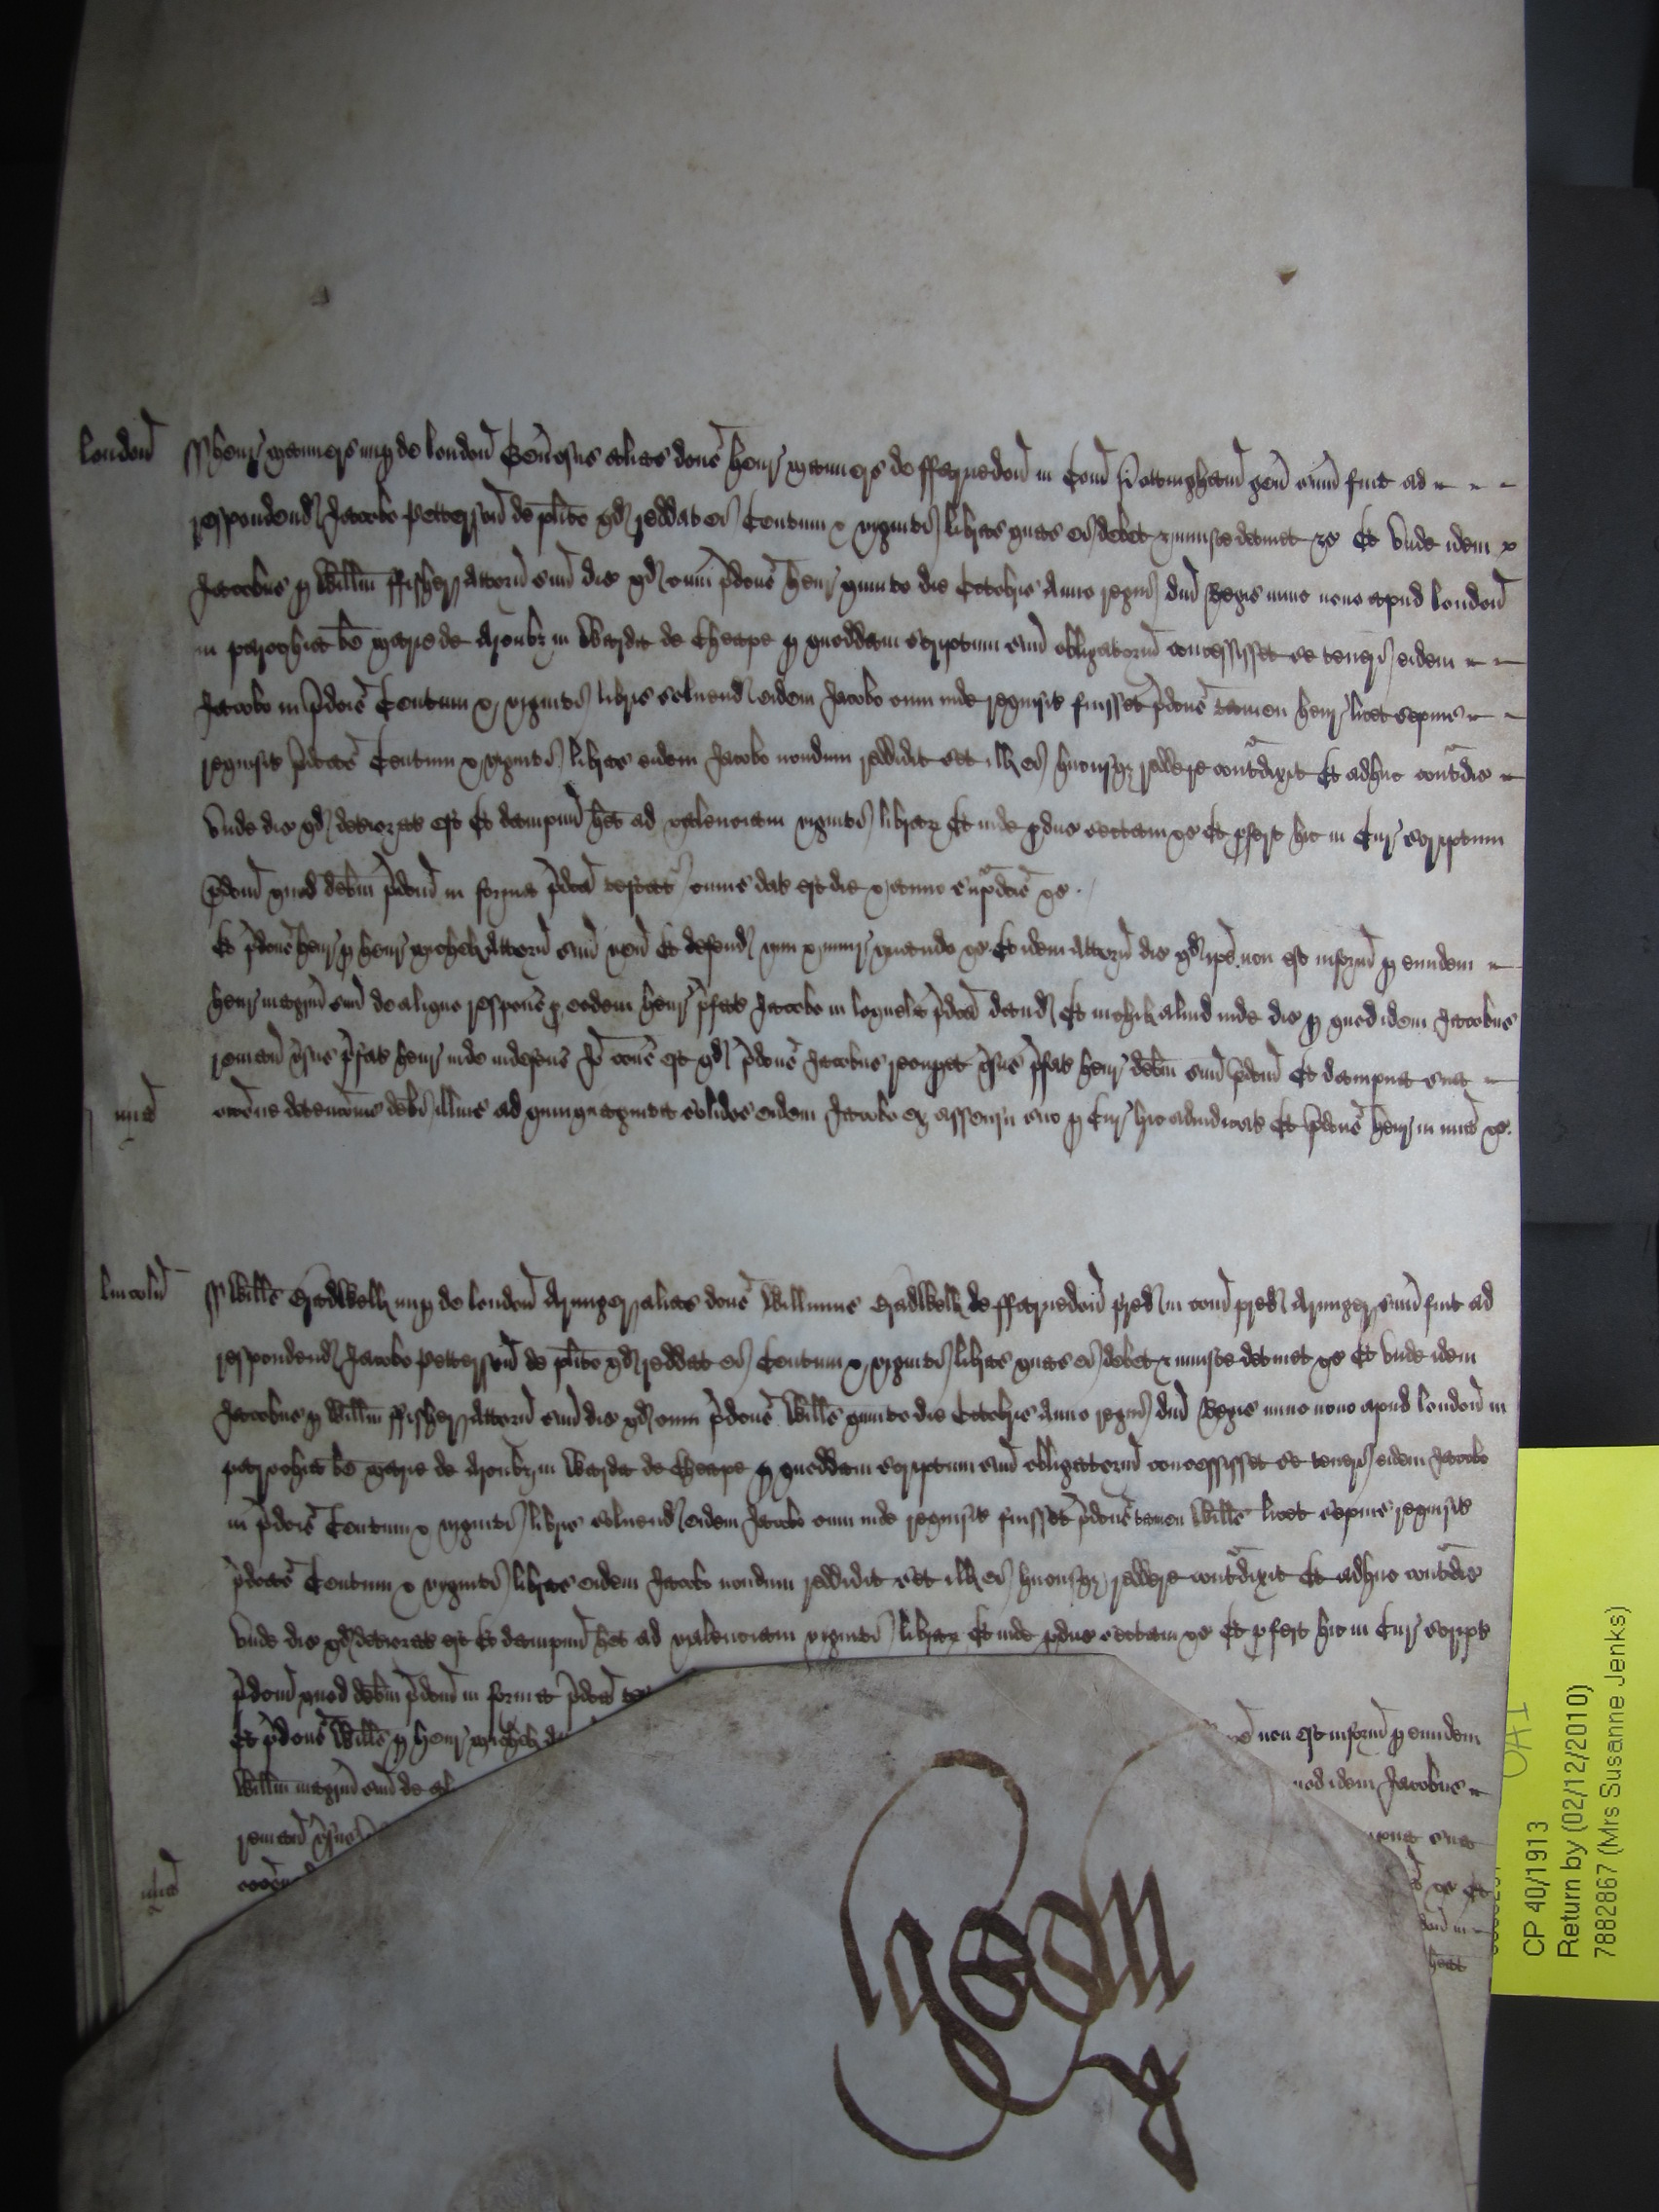 london̄
ss henr̄ maners nup de london̄ Gen̄osus alias dc̄us henr̄ maners de ffaryndon̄ in Com̄ Notinghām gen̄ sum̄ fuit ad
respondend Jacobo Petterson̄ de pl̄ito qd reddat ei Centum & viginti libras quas ei debet & iniuste detinet &c Et unde idem
Jacobus p Will̄m ffissher Attorn̄ suū dic qd cum p̄dc̄us henr̄ quinto die Octobris Anno regni dn̄i Regis nunc nono apud london̄
in parochia bē marie de Arcub in Warda de Cheape p quoddam scriptum suū obligatoriū concessisset se teneri eidem
Jacobo in p̄dc̄is Centum & viginti libris solvend eidem Jacobo cum inde requisit fuisset p̄dc̄us tamen henr̄ licet sepius
requisit p̄dc̄as Centum & viginti libras eidem Jacobo nondum reddidit set ill ei hucusq reddere contradixit Et adhuc contradic
Unde dic qd deteriorat est Et dampnū het ad valenciam viginti librar Et inde pduc sectam &c Et pfert hic in Cur̄ scriptum
p̄dc̄m quod debm̄ p̄dc̄m in forma p̄dc̄a testat cuius dat est die & anno sup̄dc̄is &c
Et p̄dc̄us henr̄ p henr̄ Attorn̄ suū ven̄ Et defend vim & iniur̄ quando &c Et idem Attorn̄ dic qd ip̄e non est informat p eundem
henr̄ magr̄m suū de aliquo respons p eodem henr̄ p̄fat Jacobo in loquela p̄dc̄a dand Et nichil aliud inde dic p quod idem Jacobus
reman̄ v̄sus p̄fat henr̄ inde indefens Io cons est qd p̄dc̄us Jacobus recuperet v̄sus p̄fat henr̄ debm̄ suū p̄dc̄m Et dampna sua
mīa
occōne detencōnis debi illius ad quinquaginta solidos eidem Jacobo ex assensu suo p Cur̄ hic adiudicat Et p̄dc̄us henr̄ in mīa &c
lincoln̄
ss Will̄s nup de london̄ Armiger alias dc̄us Willm̄us de ffaryndon̄ pred in com̄ pred Armiger sum̄ fuit ad
respondend Jacobo Petterson̄ de pl̄ito qd reddat ei Centum & viginti libras quas ei debet & iniuste detinet &c Et unde idem
Jacobus p Will̄m ffissher Attorn̄ suū dic qd cum p̄dc̄us Will̄s quinto die Octobris Anno regni dn̄i Regis nunc nono apud london̄ in
parochia bē marie de Arcub in Warda de Cheape p quoddam scriptum suū obligatoriū concessisset se teneri eidem Jacobo
in p̄dc̄is Centum & viginti libris solvend eidem Jacobo cum inde requisit fuisset p̄dc̄us tamen Will̄s licet sepius requisit
p̄dc̄as Centum & viginti libras eidem Jacobo nondum reddidit set ill ei hucusq reddere contradixit Et adhuc contradic
Unde dic qd deteriorat est Et dampnū het ad valenciam viginti librar Et inde pduc sectam &c Et pfert hic in Cur̄ script
p̄dc̄m quod debm̄ p̄dc̄m in forma p̄dc̄a
Et p̄dc̄us Will̄s p henr̄ non est informat p eundem
Will̄m magr̄m suū de idem Jacobus
reman̄ v̄sus sua
mīa
&c Et
CP 40/1913
Return by (02/12/2010)
7882867 (Mrs Susanne Jenks)